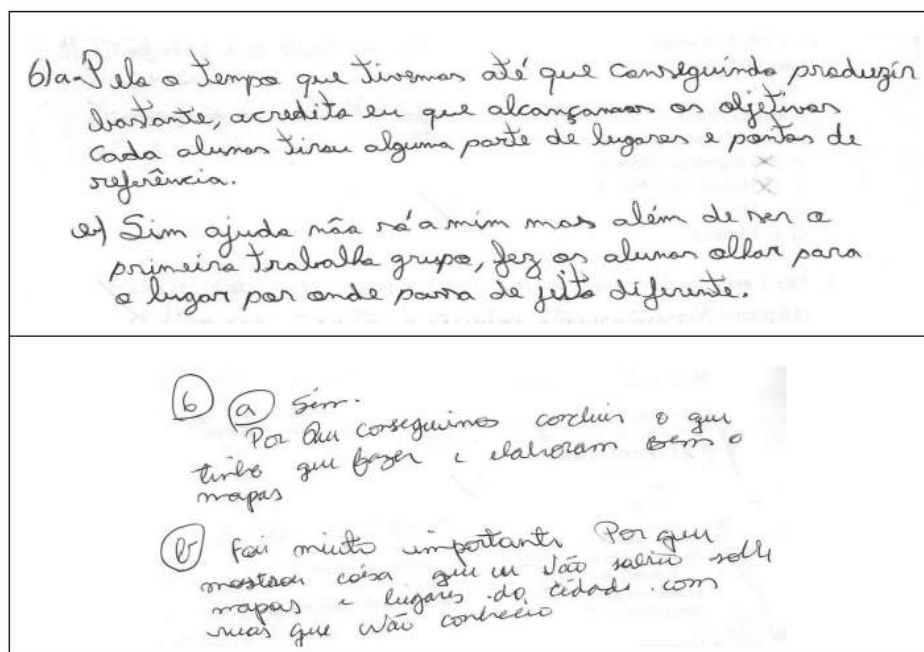 6)a- Pela o tempo que tivemos até que conseguindo produzir
bastante, acredito eu que alcançamos os objetivos
cada alunos tirou alguma parte de lugares e pontos de
referência.
e) Sim ajuda não só a mim mas além de ser o
primeiro trabalho grupo, fez os alunos olhar para
o lugar por onde passa de jeito diferente.
6 a Sim.
Por Que conseguimos concluir o que
tinha que fazer e elaboram bem o
mapas
b Foi muito importante Por que
mostrou coisa que eu Não sabia sobre
mapas e lugares da cidade com
ruas que Não conhecio